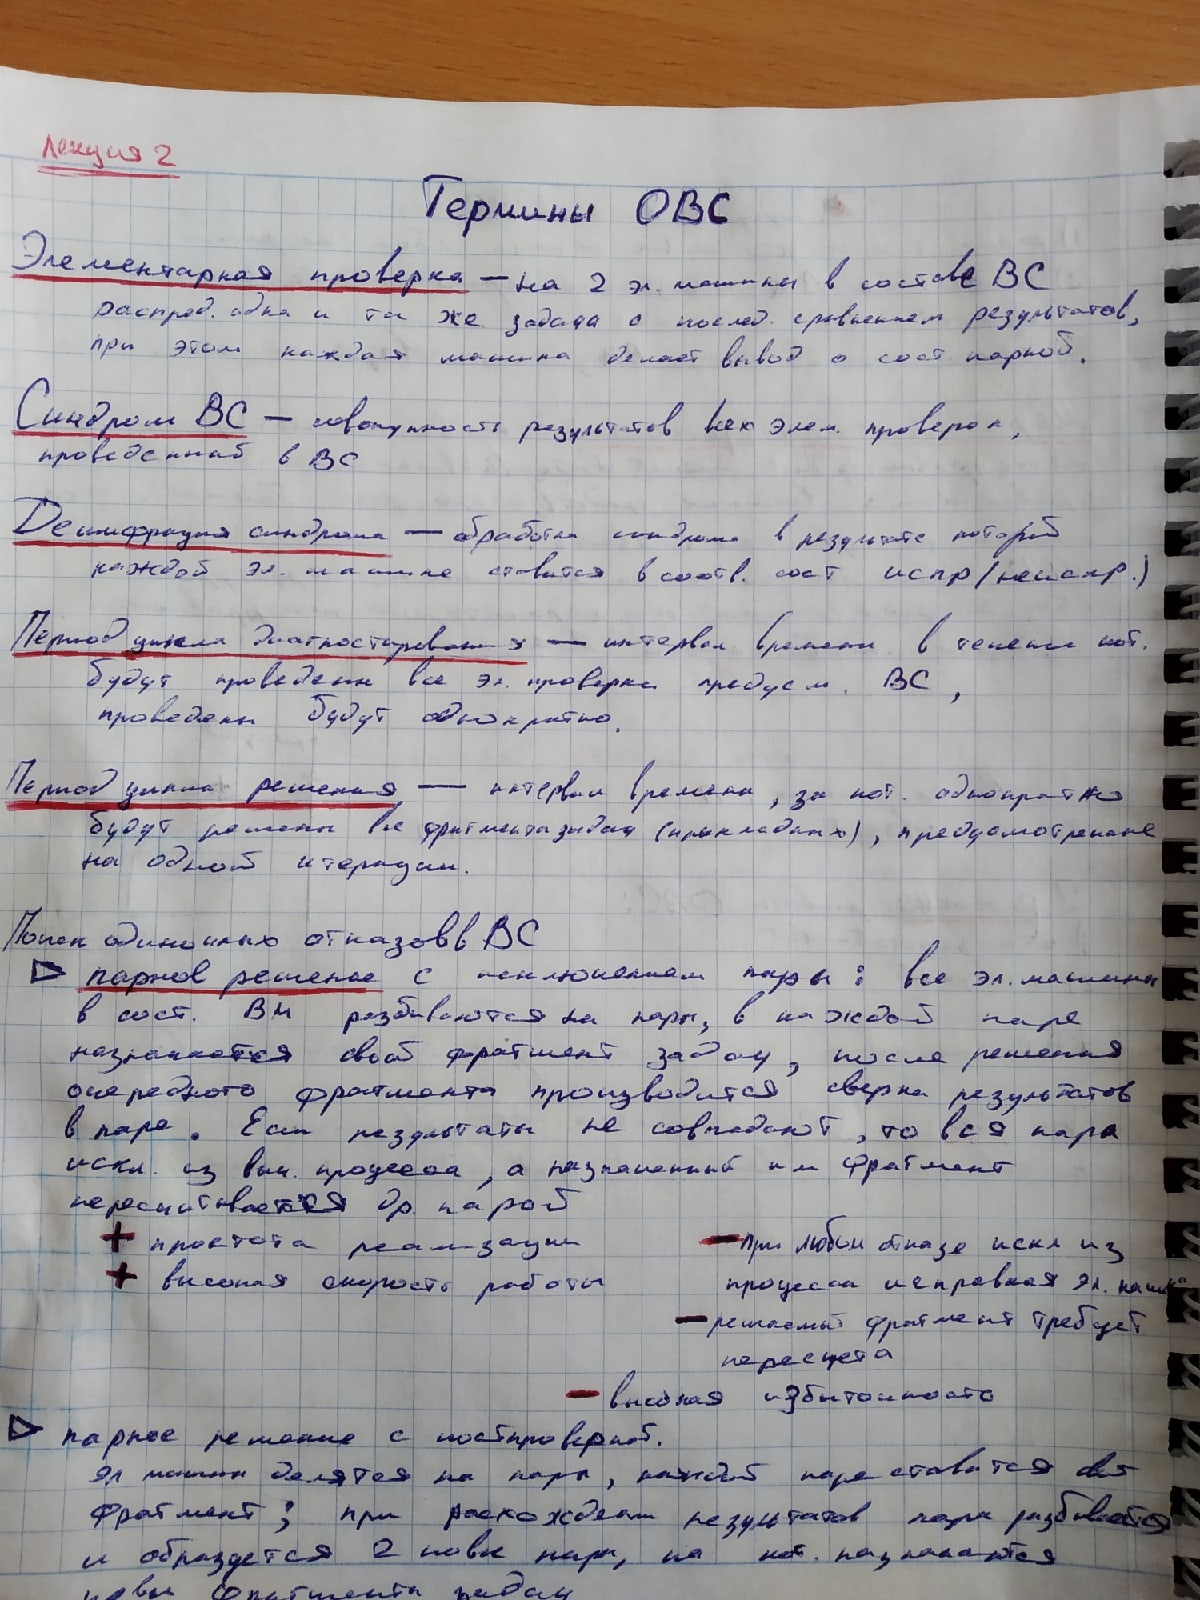 Лекция 2
Термины ОВС
Элементарная проверка — на 2 эл. машины в составе ВС
распред. одна и та же задача с послед. сравнением результатов,
при этом каждая машина делает вывод о сост парной.
Синдром ВС — совокупность результатов всех элем. проверок,
проведенных в ВС
Дешифрация синдрома — обработка синдрома в результате которой
каждой эл. машине ставится в соотв. сост испр/(неиспр.)
Период цикла диагностирования — интервал времени в течении кот.
будут проведены все эл. проверки предусм. ВС,
проведены будут однократно.
Период цикла решения — интервал времени, за кот. однократно
будут решены все фрагменты задач (прикладных), предусмотренные
на одной итерации.
Поиск одиночных отказов в ВС
парное решение с исключением пары: все эл. машины
в сост. ВМ разбиваются на пары, в каждой паре
назначается свой фрагмент задач, после решения
очередного фрагмента производится сверка результатов
в паре. Если результаты не совпадают, то вся пара
искл. из выч. процесса, а назначенный им фрагмент
пересчитывается др. парой
+ простота реализации
+ высокая скорость работы
— при любом отказе искл из
процесса исправная эл. машина
— решаемый фрагмент требует
пересчета
— высокая избыточность
парное решение с постпроверкой.
эл машины делятся на пары, каждой паре ставится свой
фрагмент; при расхождении результатов пара разбивается
и образуется 2 новые пары, на кот. назначаются
новые фрагменты задач